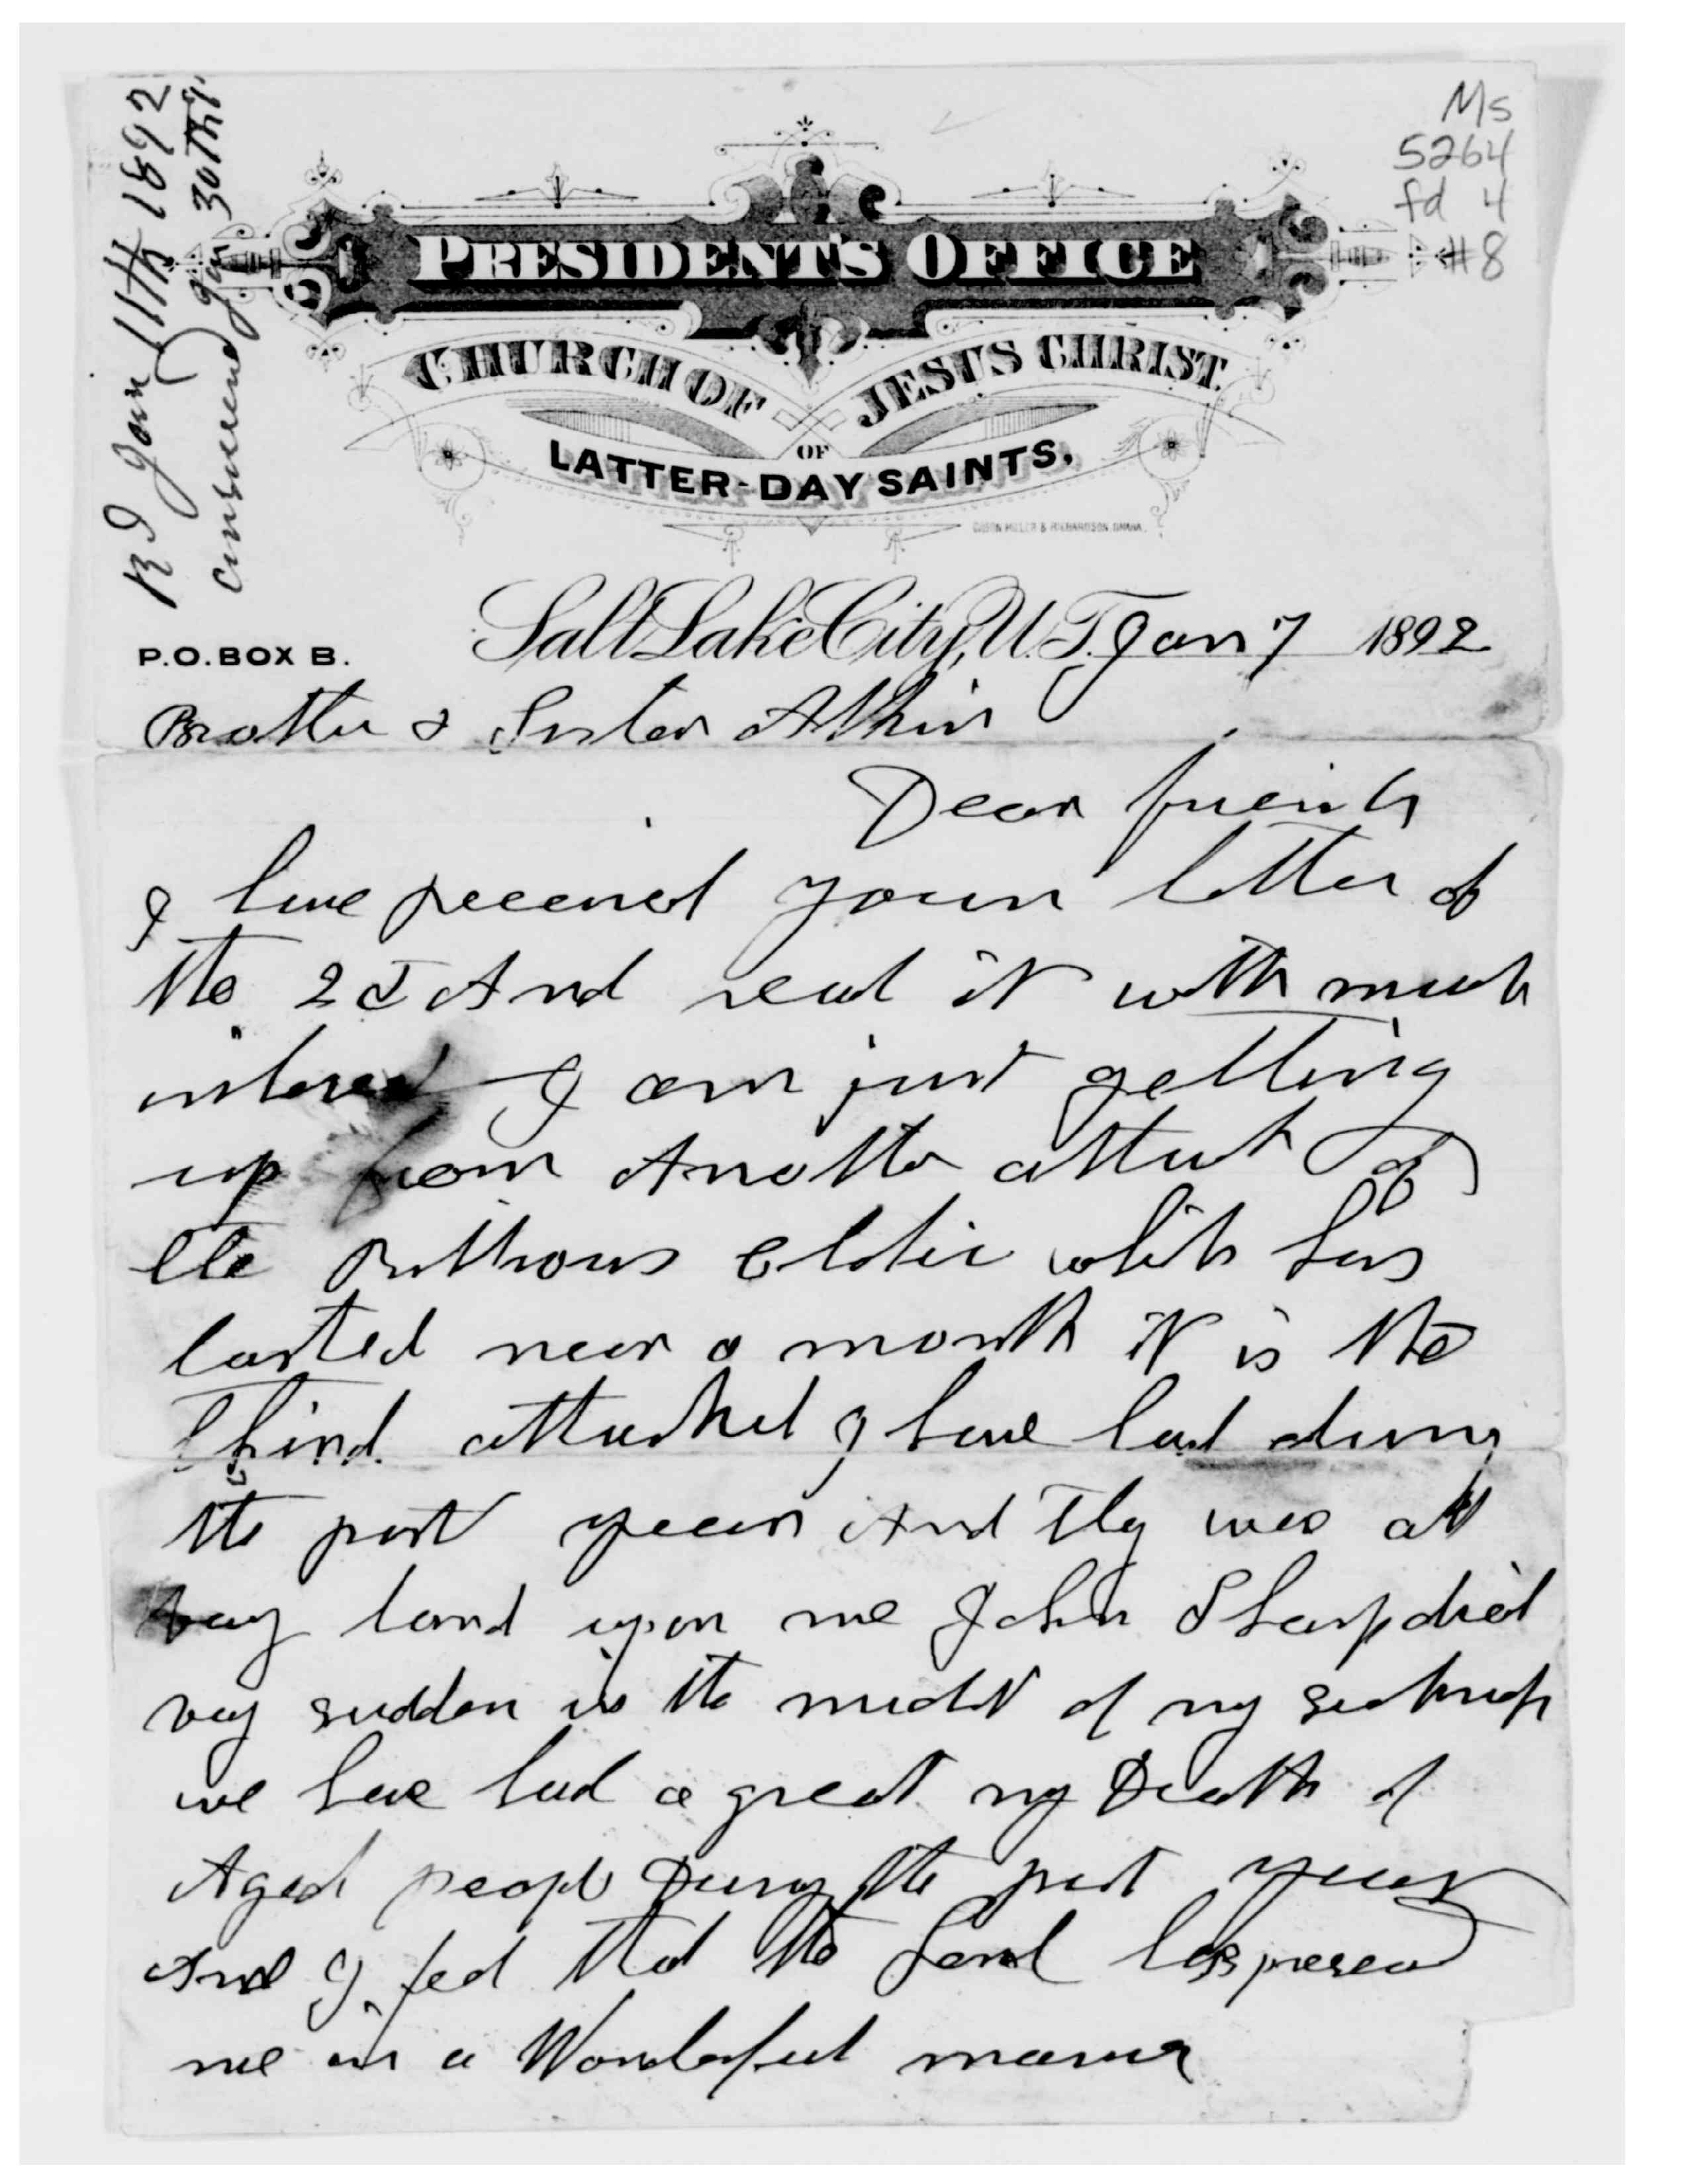 Rd Jan 11th 1892
answered Jan 30th
Ms
5264
fd 4
#8
PRESIDENT'S OFFICE
CHURCH OF JESUS CHRIST
OF
LATTER-DAY SAINTS.
P.O. BOX B.
Salt Lake City, U.T. Jan 7 1892
Brother & Sister Atkin
Dear friends
I have received your letter of
the 2d And read it with much
interest I am just getting
up from Another attack of
the
which has
lasted near a month it is the
third attacked I have had during
the past year And they was all
vary hard upon me John Sharp died
vey sudden in the midst of my sickness
we have had a great my Death of
Aged people During the past year
And I feel that the Lord has preserved
me in a Wonderful manner